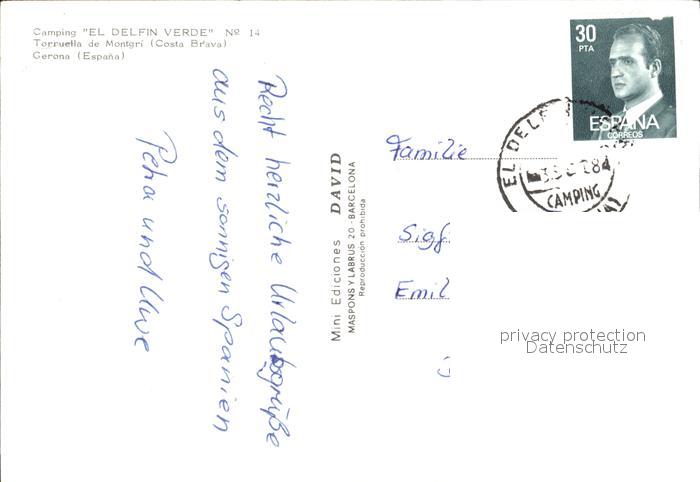 Camping "EL DELFIN VERDE" Nº 14
Torruella de Montgrí (Costa Brava)
Gerona (España)
Recht herzliche Urlaubsgrüße
aus dem sonnigen Spanien
Petra und Uwe
Mini Ediciones DAVID
MASPONS Y LABRUS 20 - BARCELONA
Reproducción prohibida
30
PTA
ESPAÑA
CORREOS
EL DELF
CAMPING
Familie
Emil
privacy protection
Datenschutz